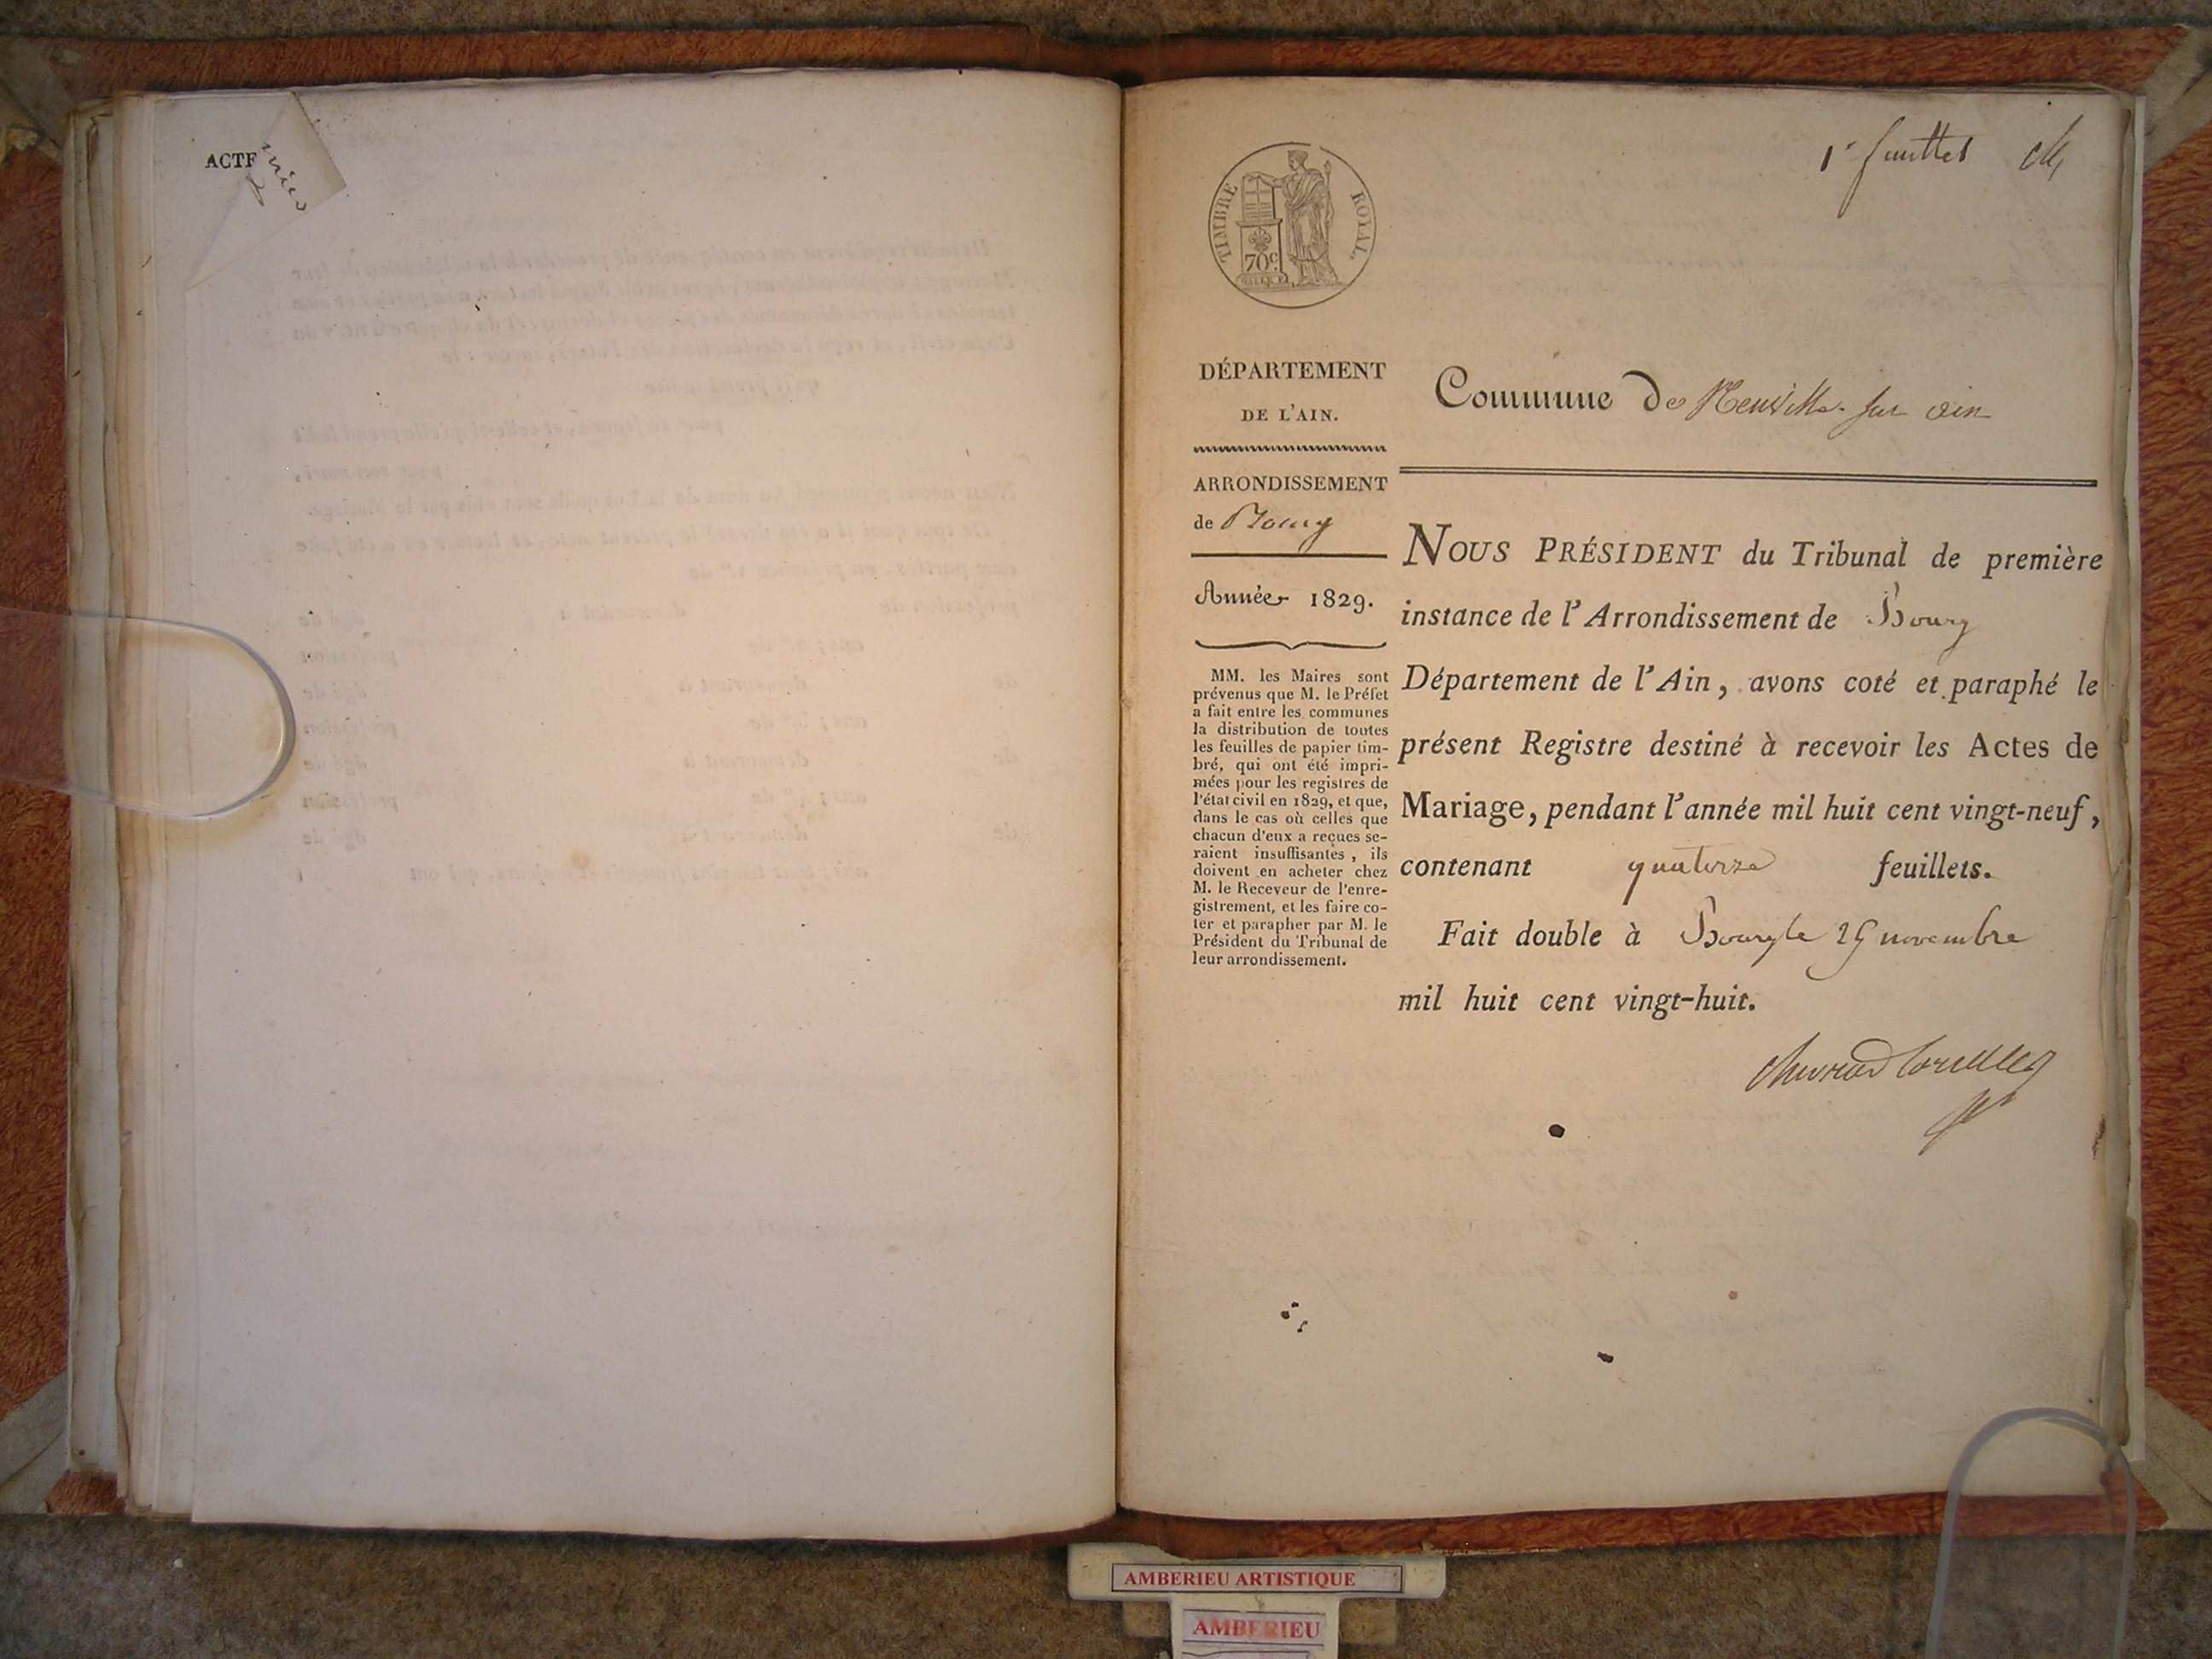 ACTE
TIMBRE ROYAL
70 c.
1er feuillet
DÉPARTEMENT
DE L'AIN.
ARRONDISSEMENT
de Bourg
Année 1829.
MM. les Maires sont
prévenus que M. le Préfet
a fait entre les communes
la distribution de toutes
les feuilles de papier tim-
bré, qui ont été impri-
mées pour les registres de
l'état civil en 1829, et que,
dans le cas où celles que
chacun d'eux a reçues se-
raient insuffisantes, ils
doivent en acheter chez
M. le Receveur de l'enre-
gistrement, et les faire co-
ter et parapher par M. le
Président du Tribunal de
leur arrondissement.
Commune de Neuville sur ain
NOUS PRÉSIDENT du Tribunal de première
instance de l'Arrondissement de Bourg
Département de l'Ain, avons coté et paraphé le
présent Registre destiné à recevoir les Actes de
Mariage, pendant l'année mil huit cent vingt-neuf,
contenant quatorze feuillets.
Fait double à Bourg le novembre
mil huit cent vingt-huit.
AMBERIEU ARTISTIQUE
AMBERIEU